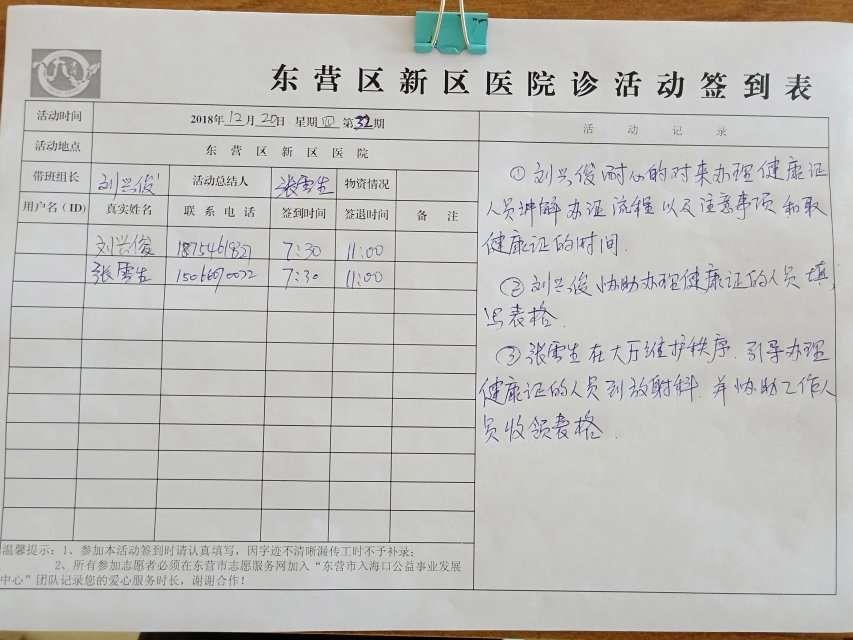 东营区新区医院诊活动签到表
活动时间 2018年12月20日 星期四 第32期
活动地点 东营区新区医院
带班组长 刘兴俊 活动总结人 张雪生 物资情况
用户名(ID) 真实姓名 联系电话 签到时间 签退时间 备注
刘兴俊 18754619827 7:30 11:00
张雪生 15066070022 7:30 11:00
活动记录
①刘兴俊耐心的对来办理健康证
人员讲解办证流程以及注意事项和取
健康证的时间.
②刘兴俊协助办理健康证的人员填
写表格.
③张雪生在大厅维护秩序.引导办理
健康证的人员到放射科.并协助工作人
员收领表格.
温馨提示:1、参加本活动签到时请认真填写,因字迹不清晰漏传工时不予补录;
2、所有参加志愿者必须在东营市志愿服务网加入“东营市入海口公益事业发展
中心”团队记录您的爱心服务时长,谢谢合作!